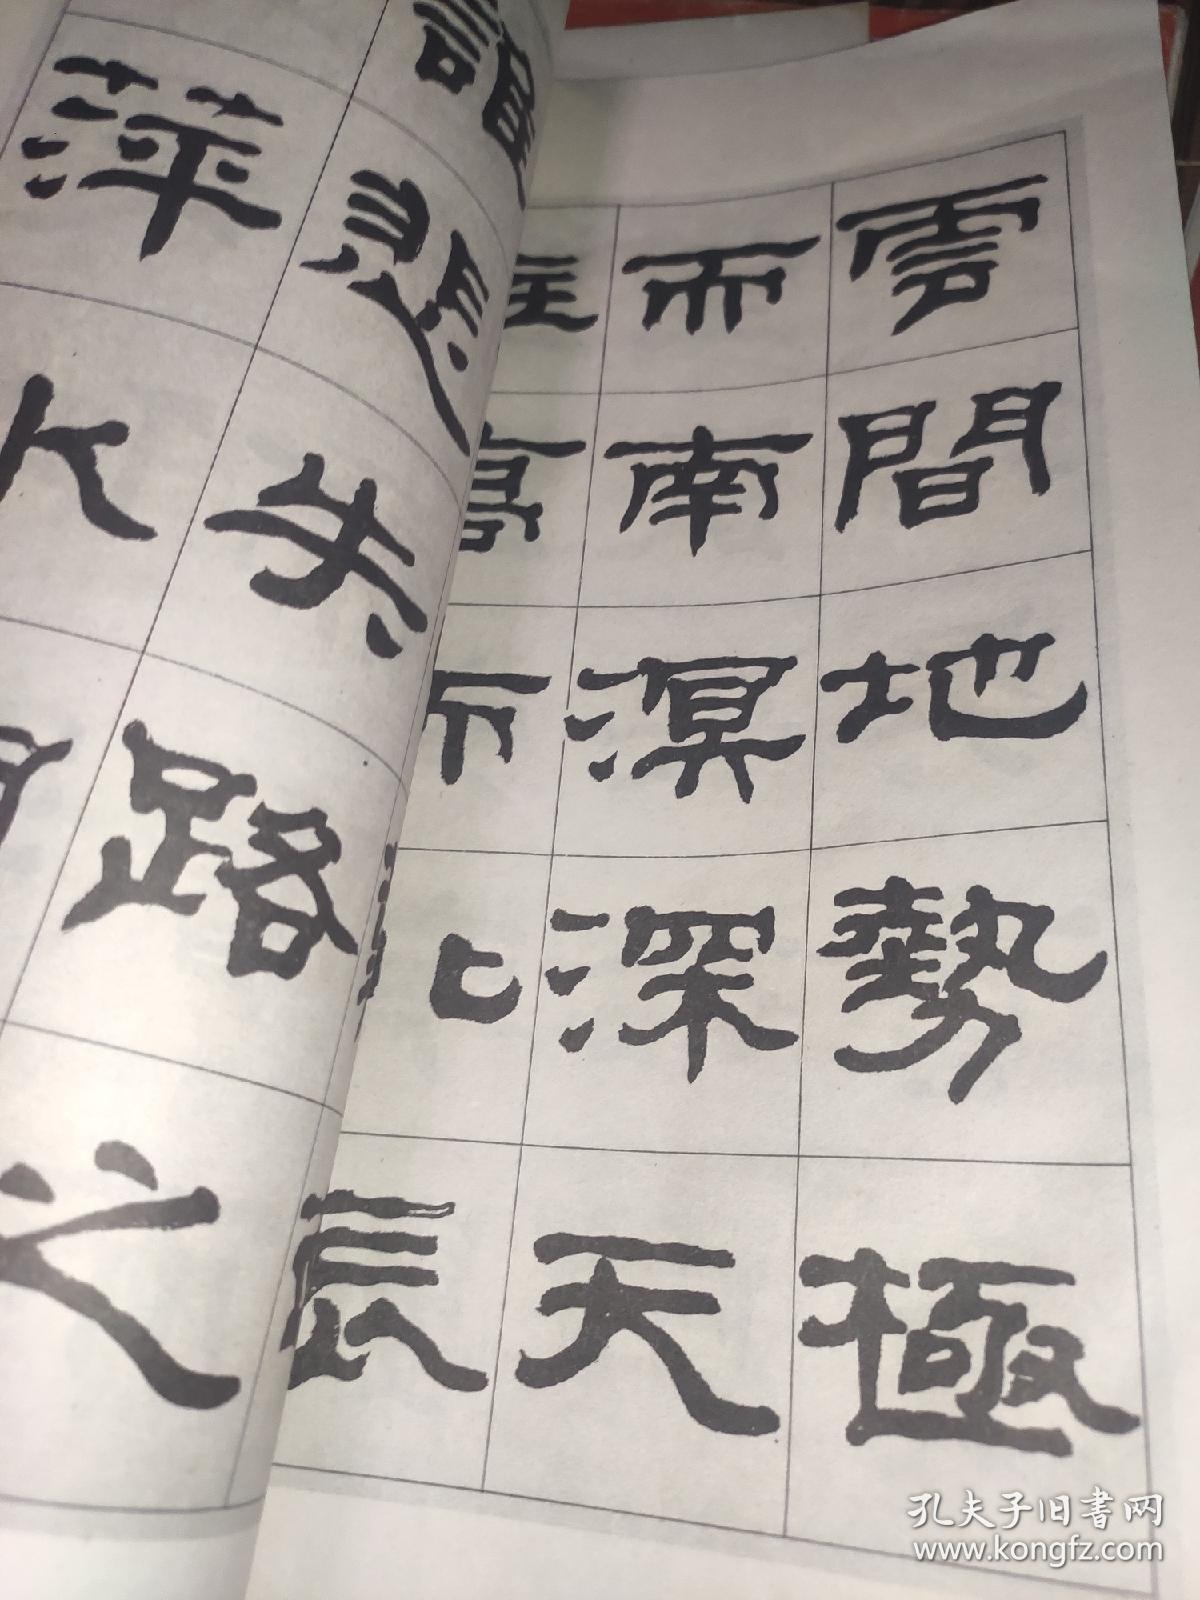 雲間地勢極
而南溟深天
柱高而北辰
誰悲失路之
萍水
孔夫子旧書网
www.kongfz.com